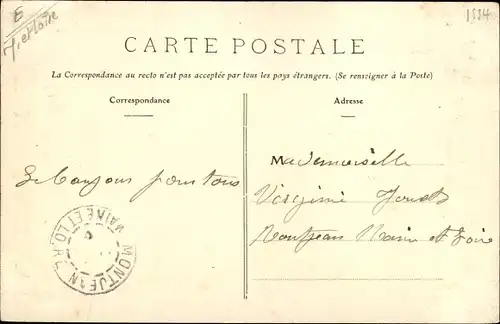 E
1334
CARTE POSTALE
La Correspondance au recto n'est pas acceptée par tous les pays étrangers. (Se renseigner à la Poste)
Correspondance
Adresse
Mademoiselle
Le Bonjour pour tous
Virginie
Montjean Maine et Loire
MONTJEAN
MAINE ET LOIRE